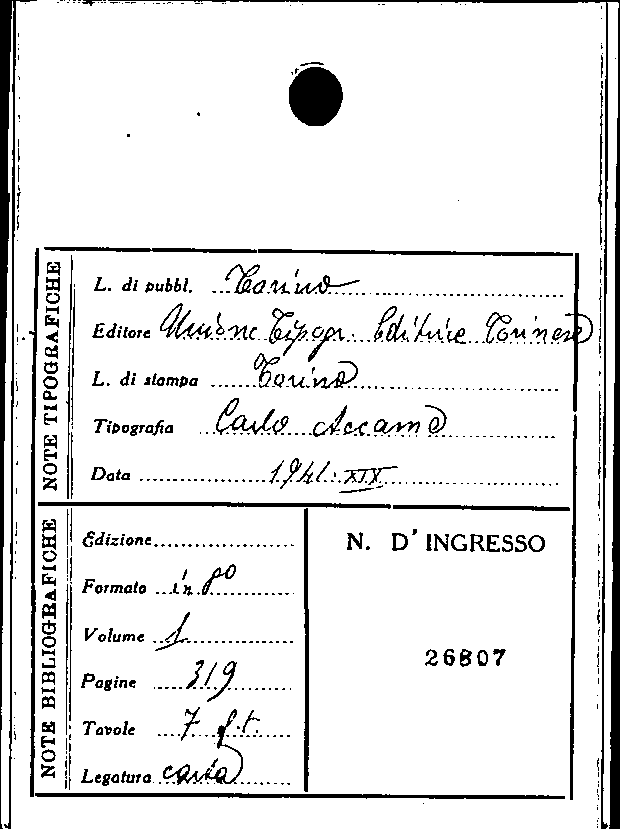 NOTE TIPOGRAFICHE
L. di pubbl. Torino
Editore Unione Tipogr. Editrice Torinese
L. di stampa Torino
Tipografia Carlo Accame
Data 1941-XIX
NOTE BIBLIOGRAFICHE
Edizione
Formato in 8º
Volume 1
Pagine 319
Tavole 7 f.t.
Legatura carta
N. D'INGRESSO
26807